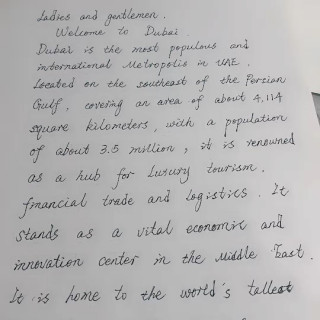 Ladies and gentlemen.
Welcome to Dubai.
Dubai is the most populous and
international Metropolis in UAE.
Located on the southeast of the Persian
Gulf, covering an area of about 4,114
square kilometers, with a population
of about 3.5 million, it is renowned
as a hub for Luxury tourism.
financial trade and logistics. It
stands as a vital economic and
innovation center in the Middle East.
It is home to the world's tallest